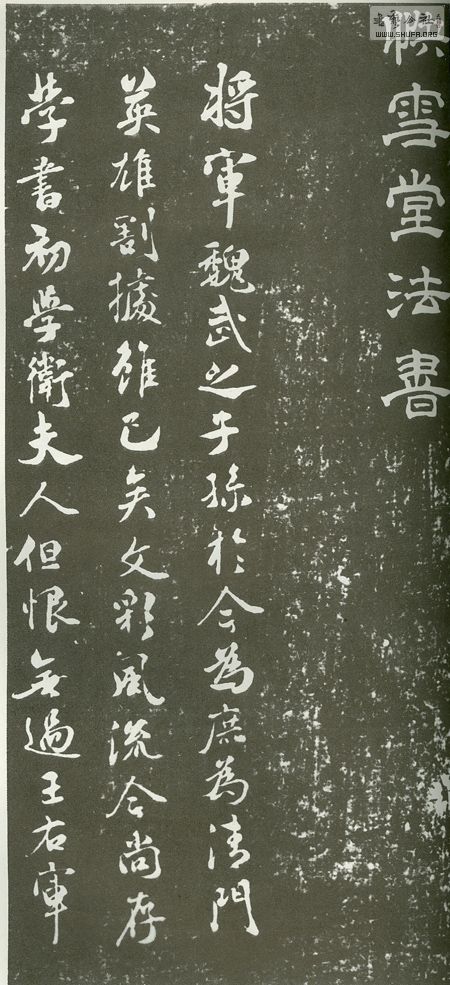 书艺公社
WWW.SHUFA.ORG
快雪堂法書
将軍魏武之子孫於今為庶為清門
英雄割據雖已矣文彩風流今尚存
學書初學衛夫人但恨無過王右軍